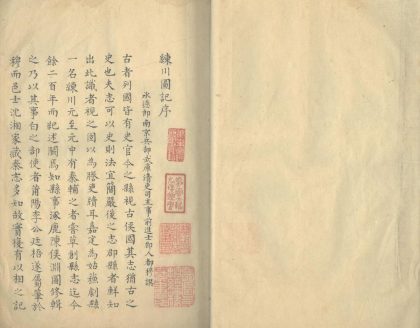 練川圖記序
承德郎南京兵部武庫清吏司主事前進士郡人都穆譔
古者列國皆有史官今之縣視古侯國其志猶古之
史也夫志可以史則法宜簡嚴後之志郡縣者鮮知
出此識者視之固以為勝吏牘耳嘉定為姑蘇劇縣
一名練川元至元中有秦輔之者嘗草創縣志迄今
餘二百年而紀述闕焉知縣事涿鹿陳侯淵圖修輯
之乃以其事白之部使者莆陽李公廷梧遂屬筆於
穆而邑士沈湘家藏秦志多知故實復有以相之記